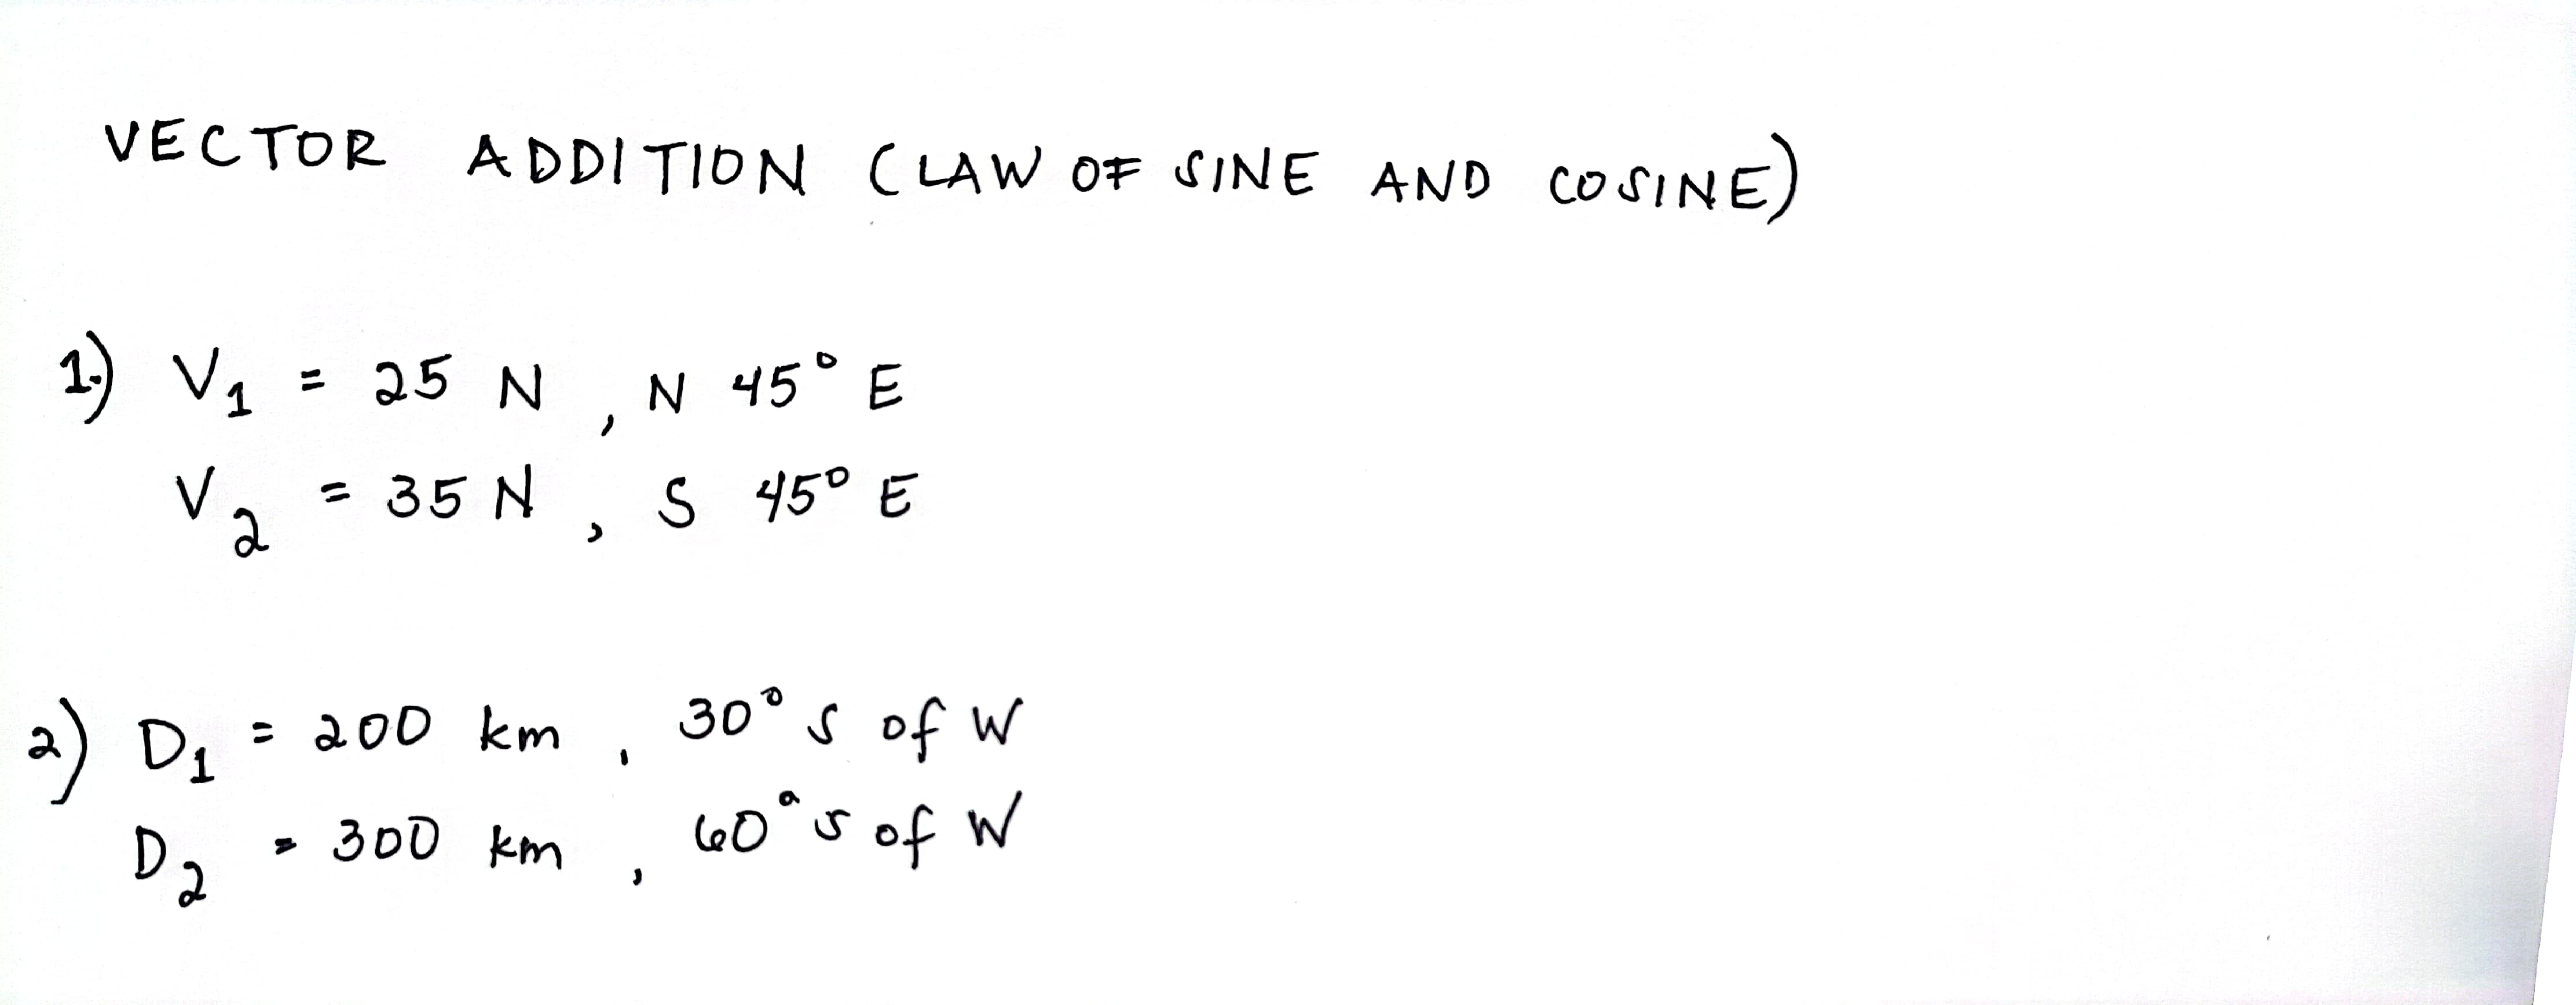 VECTOR ADDITION (LAW OF SINE AND COSINE)
1.) V₁ = 25 N , N 45° E
V₂ = 35 N , S 45° E
2) D₁ = 200 km , 30° S of W
D₂ = 300 km , 60° S of W